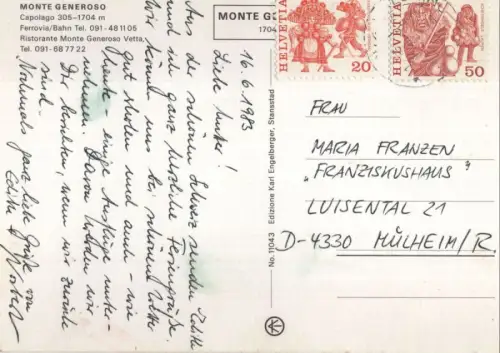 MONTE GENEROSO
Capolago 305-1704 m
Ferrovia/Bahn Tel. 091-48 11 05
Ristorante Monte Generoso Vetta,
Tel. 091-68 77 22
MONTE G
1704
HELVETIA
20
HELVETIA
50
16.6.1983
Liebe Mutter!
Aus der schönen Schweiz senden Edith
und ich ganz herzliche Feriengrüße.
Wir können uns bei schönem Wetter
gut erholen und auch – wie
heute – einige Ausflüge unter-
nehmen. Davon werden wir
Dir berichten, wenn wir zurück
sind.
Nochmals ganz liebe Grüße von
Edith &
No. 11043 Edizione Karl Engelberger, Stansstad
FRAU
MARIA FRANZEN
"FRANZISKUSHAUS"
LUISENTAL 21
D-4330 MÜLHEIM/R.